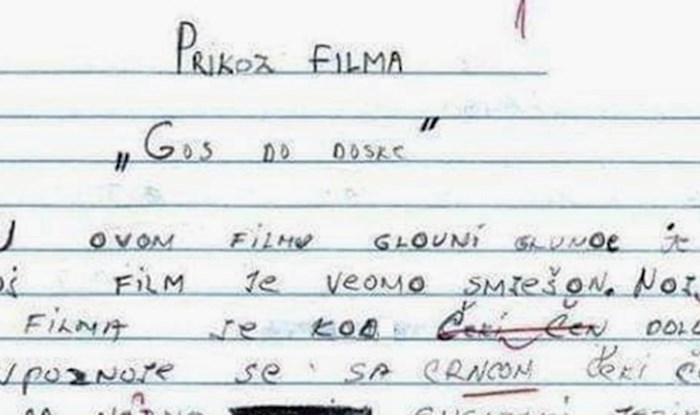 PRIKOZ FILMA
„GOS DO DOSKE"
U OVOM FILMU GLOUNI GLUMOC JE
FILM JE VEOMO SMJEŠON. NOJ
FILMA JE KOD ČEKI ČEN DOL
UPOZNOJE SE SA CRNCOM ČEKI